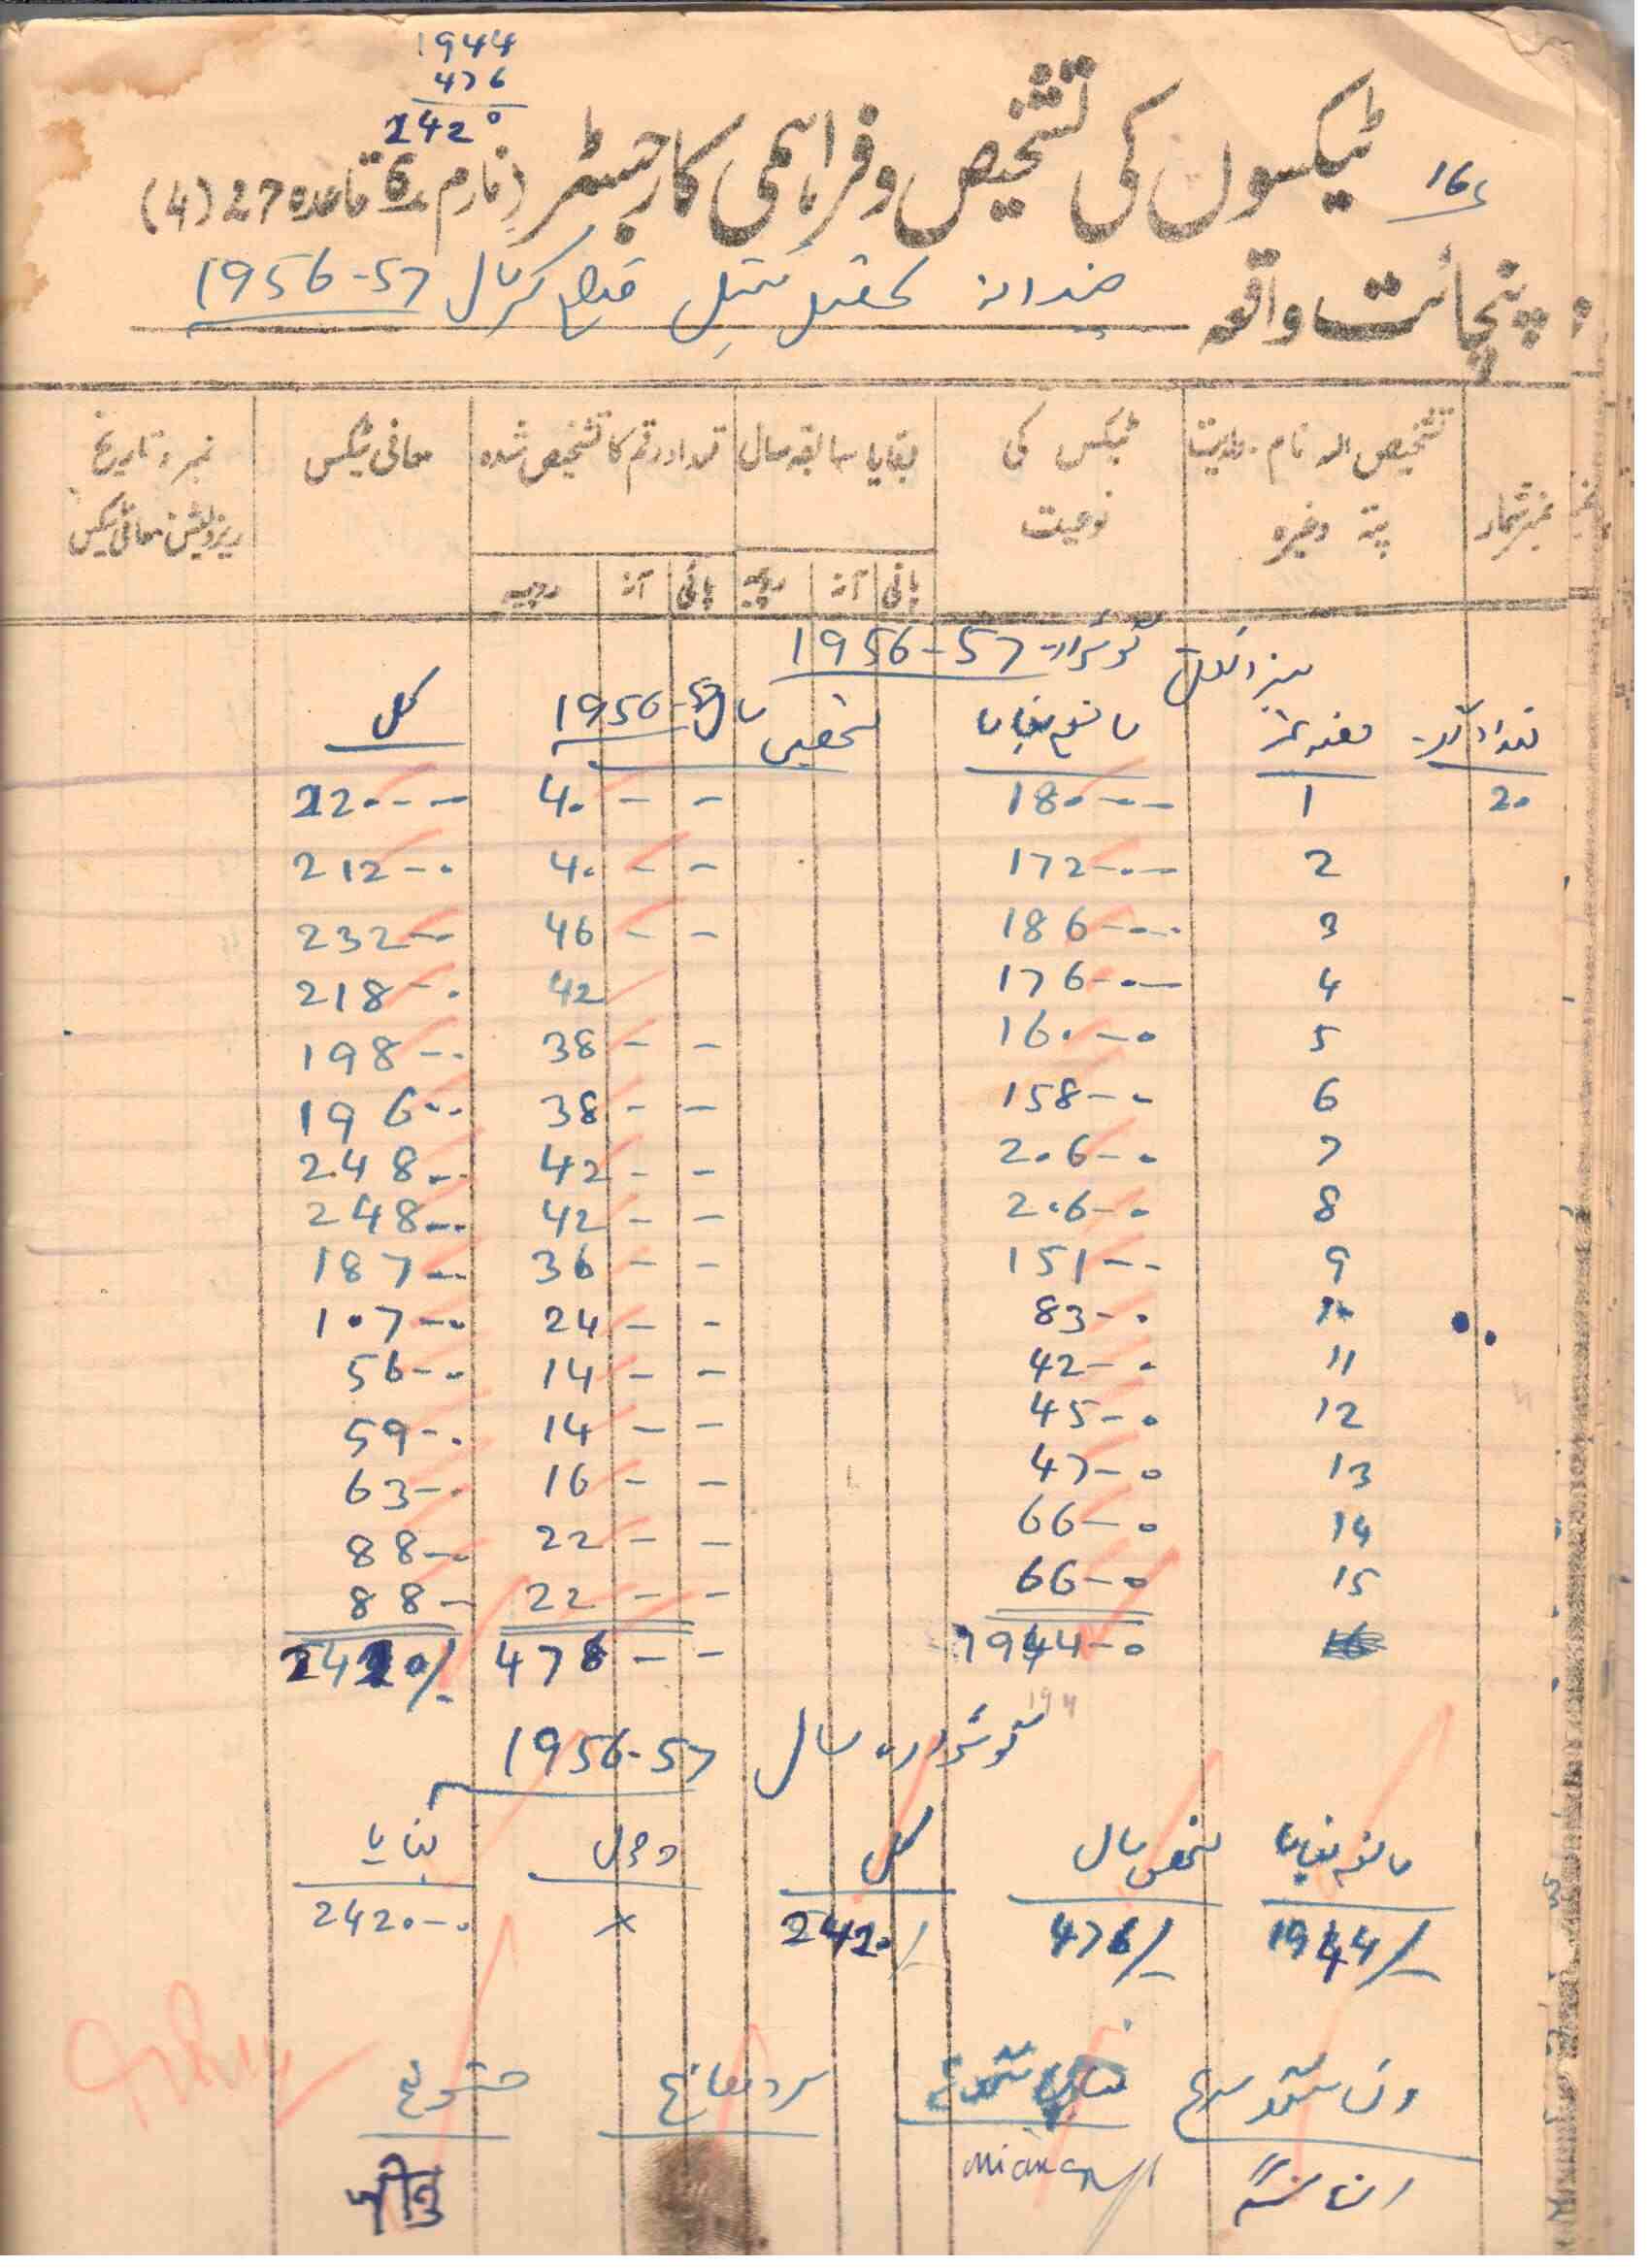 1944
476
2420
ٹیکسوں کی تشخیص و فراہمی کا رجسٹر (فارم 6 قاعدہ 27 (4)
16
پنچائت واقعہ تحصیل کیتھل ضلع کرنال 1956-57
نمبر شمار تشخیص الہ نام۔ ولدیت پتہ وغیرہ ٹیکس کی نوعیت بقایا سابقہ سال تعداد رقم کا تشخیص شدہ معافی ٹیکس نمبر و تاریخ ریزولیشن معافی ٹیکس
پائی آنہ روپیہ پائی آنہ روپیہ
میزان کل گوشوارہ 1956-57
تعداد صفحہ نمبر سابقہ بقایا تشخیص سال 1956-57 کل
20 1 180-- 40 - - 220--
2 172-- 40 - - 212--
3 186-- 46 - - 232--
4 176-- 42 218--
5 160-0 38 - - 198--
6 158-- 38 - - 196--
7 206-0 42 - - 248--
8 206-0 42 - - 248--
9 151-- 36 - - 187--
10 83-0 24 - - 107-0
11 42-0 14 - - 56-0
12 45-0 14 - - 59-0
13 47-0 16 - - 63-0
14 66-0 22 - - 88-0
15 66-0 22 - - 88-
1944-0 476 - - 2420/-
گوشوارہ سال 1956-57
سابقہ بقایا تشخیص سال کل وصول بقایا
1944/- 476/- 2420/- × 2420-0